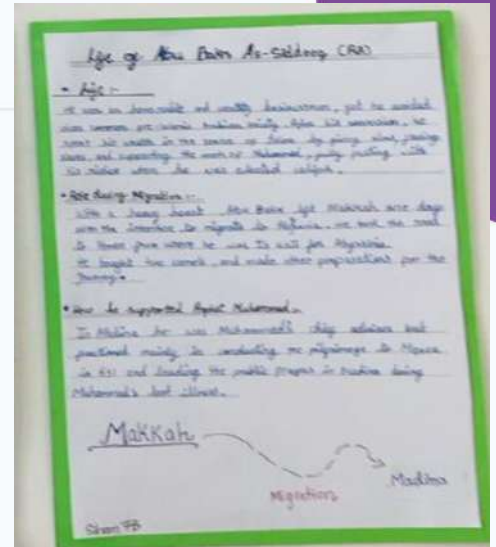 Life of Abu Bakr As-Siddeeq (RA)
• Life :-
He was an honourable and wealthy businessman, yet he avoided
common pre-Islamic After his conversion, he
spent his wealth in the cause of Islam by giving alms, freeing
slaves, and supporting the work of Muhammad, parting with
his riches when he was elected caliph.
• Role during Migration :-
With a heavy heart, Abu Bakr left Makkah one day
with the intention to migrate to Abyssinia. He took the road
to Yemen from where he was to sail for Abyssinia.
He bought two camels, and made other preparations for the
journey.
• How he supported Prophet Muhammad :-
In Madina he was Muhammad's chief advisor but
functioned mainly in conducting the pilgrimage to Mecca
in 631 and leading the public prayers in Madina during
Muhammad's last illness.
Makkah
Madina
Migration
7B